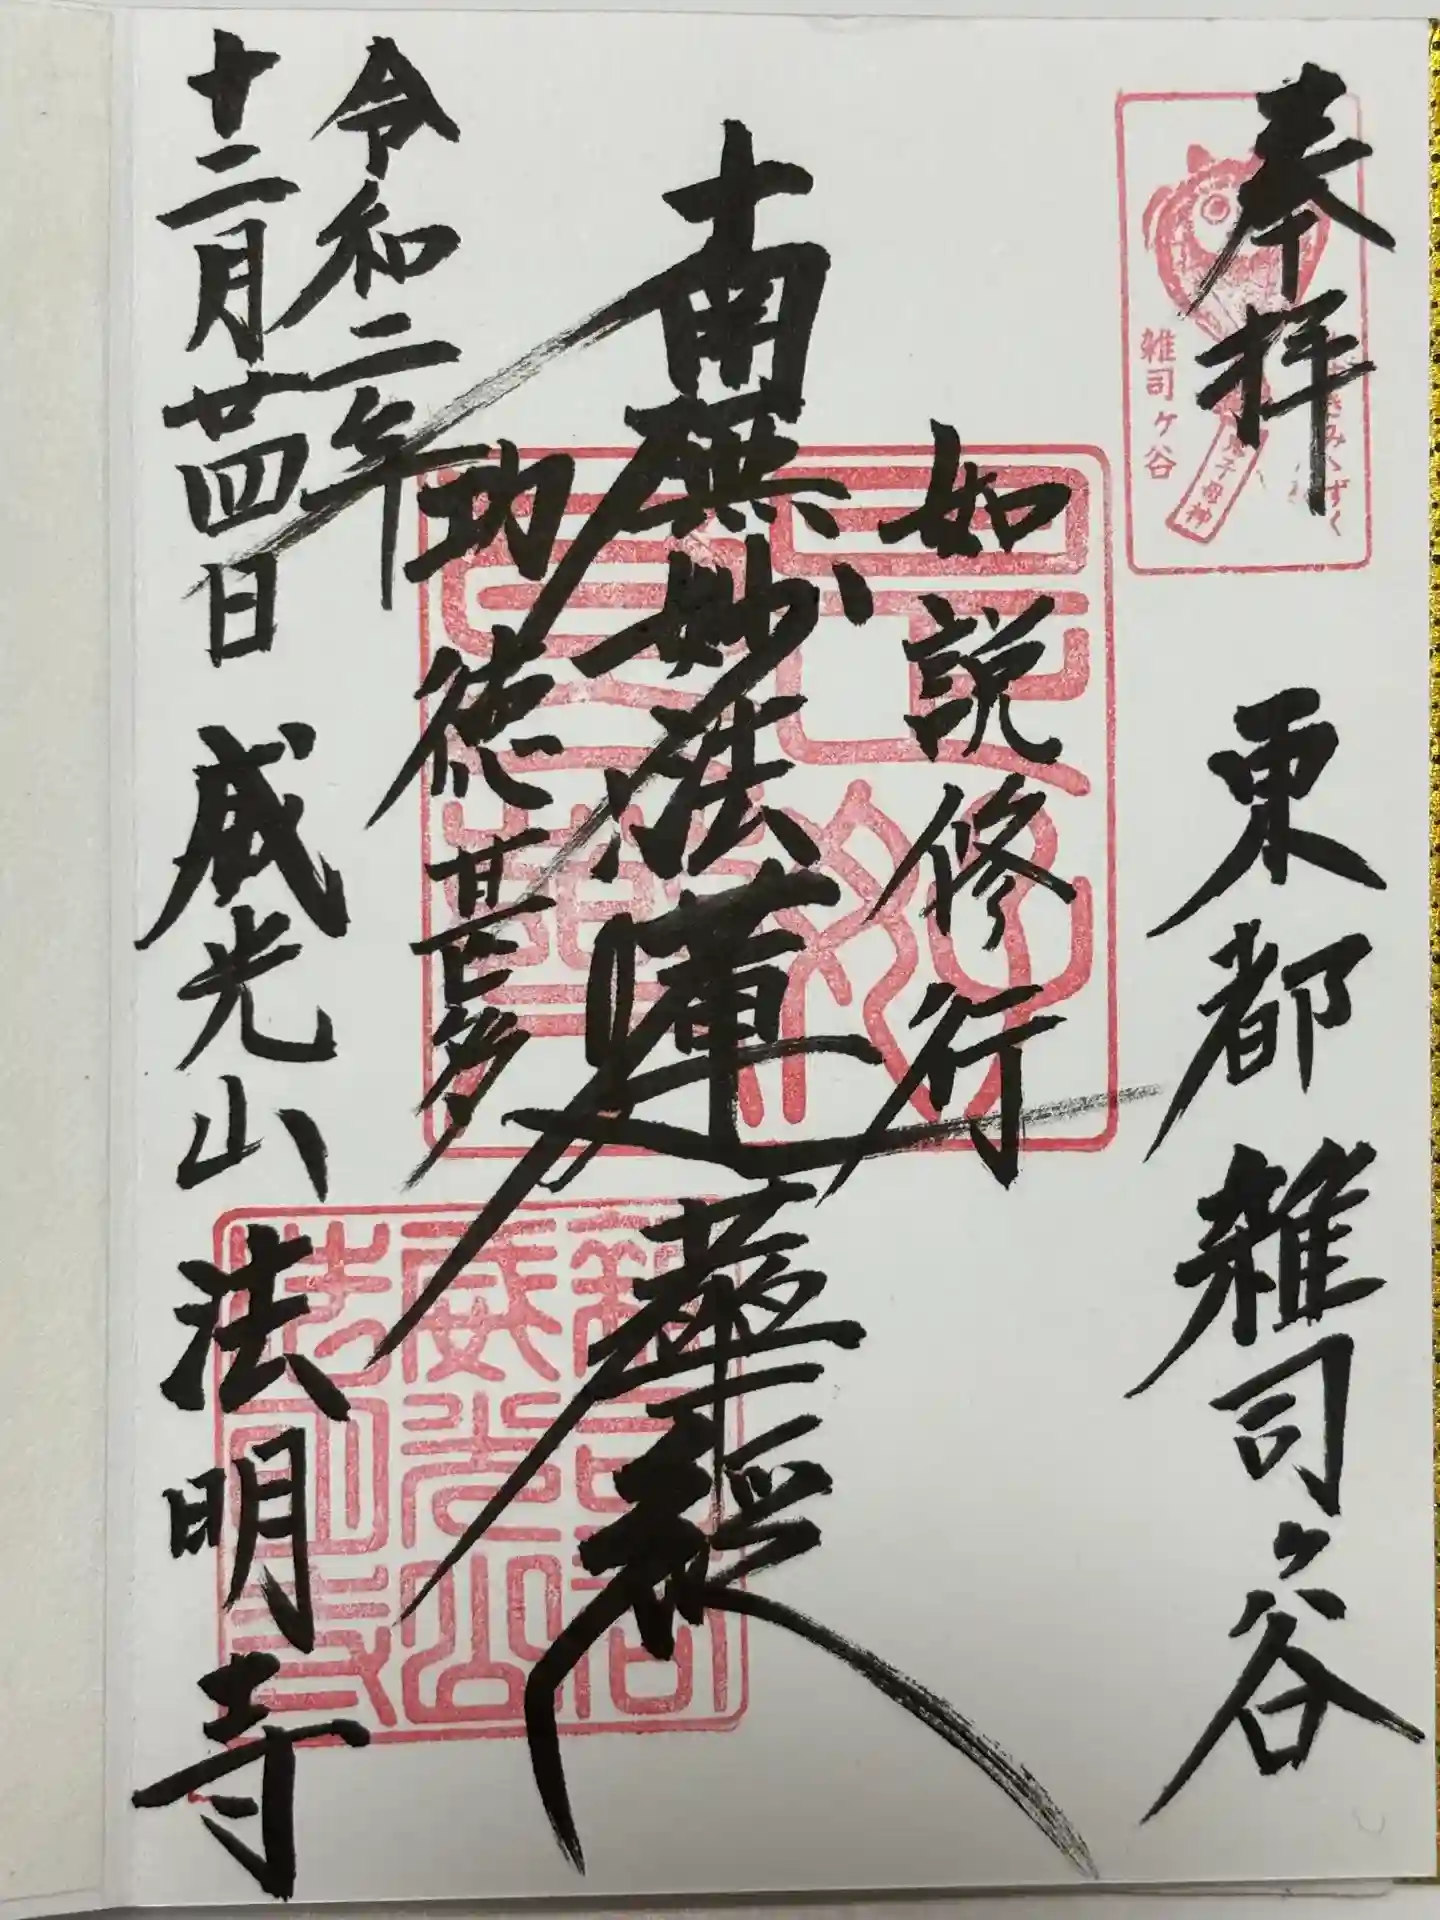 奉拝
東都 雑司ヶ谷
雑司ヶ谷
すすきみみずく
鬼子母神
如説修行
南無妙法蓮華経
功徳甚多
令和二年
十二月廿四日
威光山 法明寺